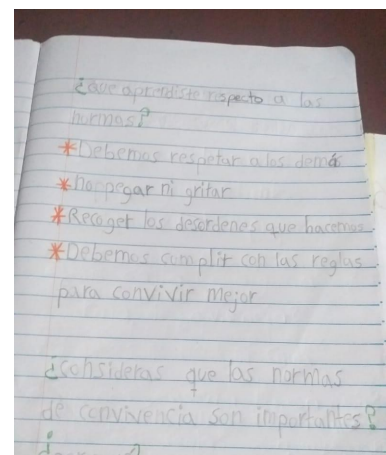 ¿que aprendiste respecto a las
normas?
*Debemos respetar a los demás
*no pegar ni gritar
*Recoger los desordenes que hacemos
*Debemos cumplir con las reglas
para convivir mejor
¿consideras que las normas
de convivencia son importantes?